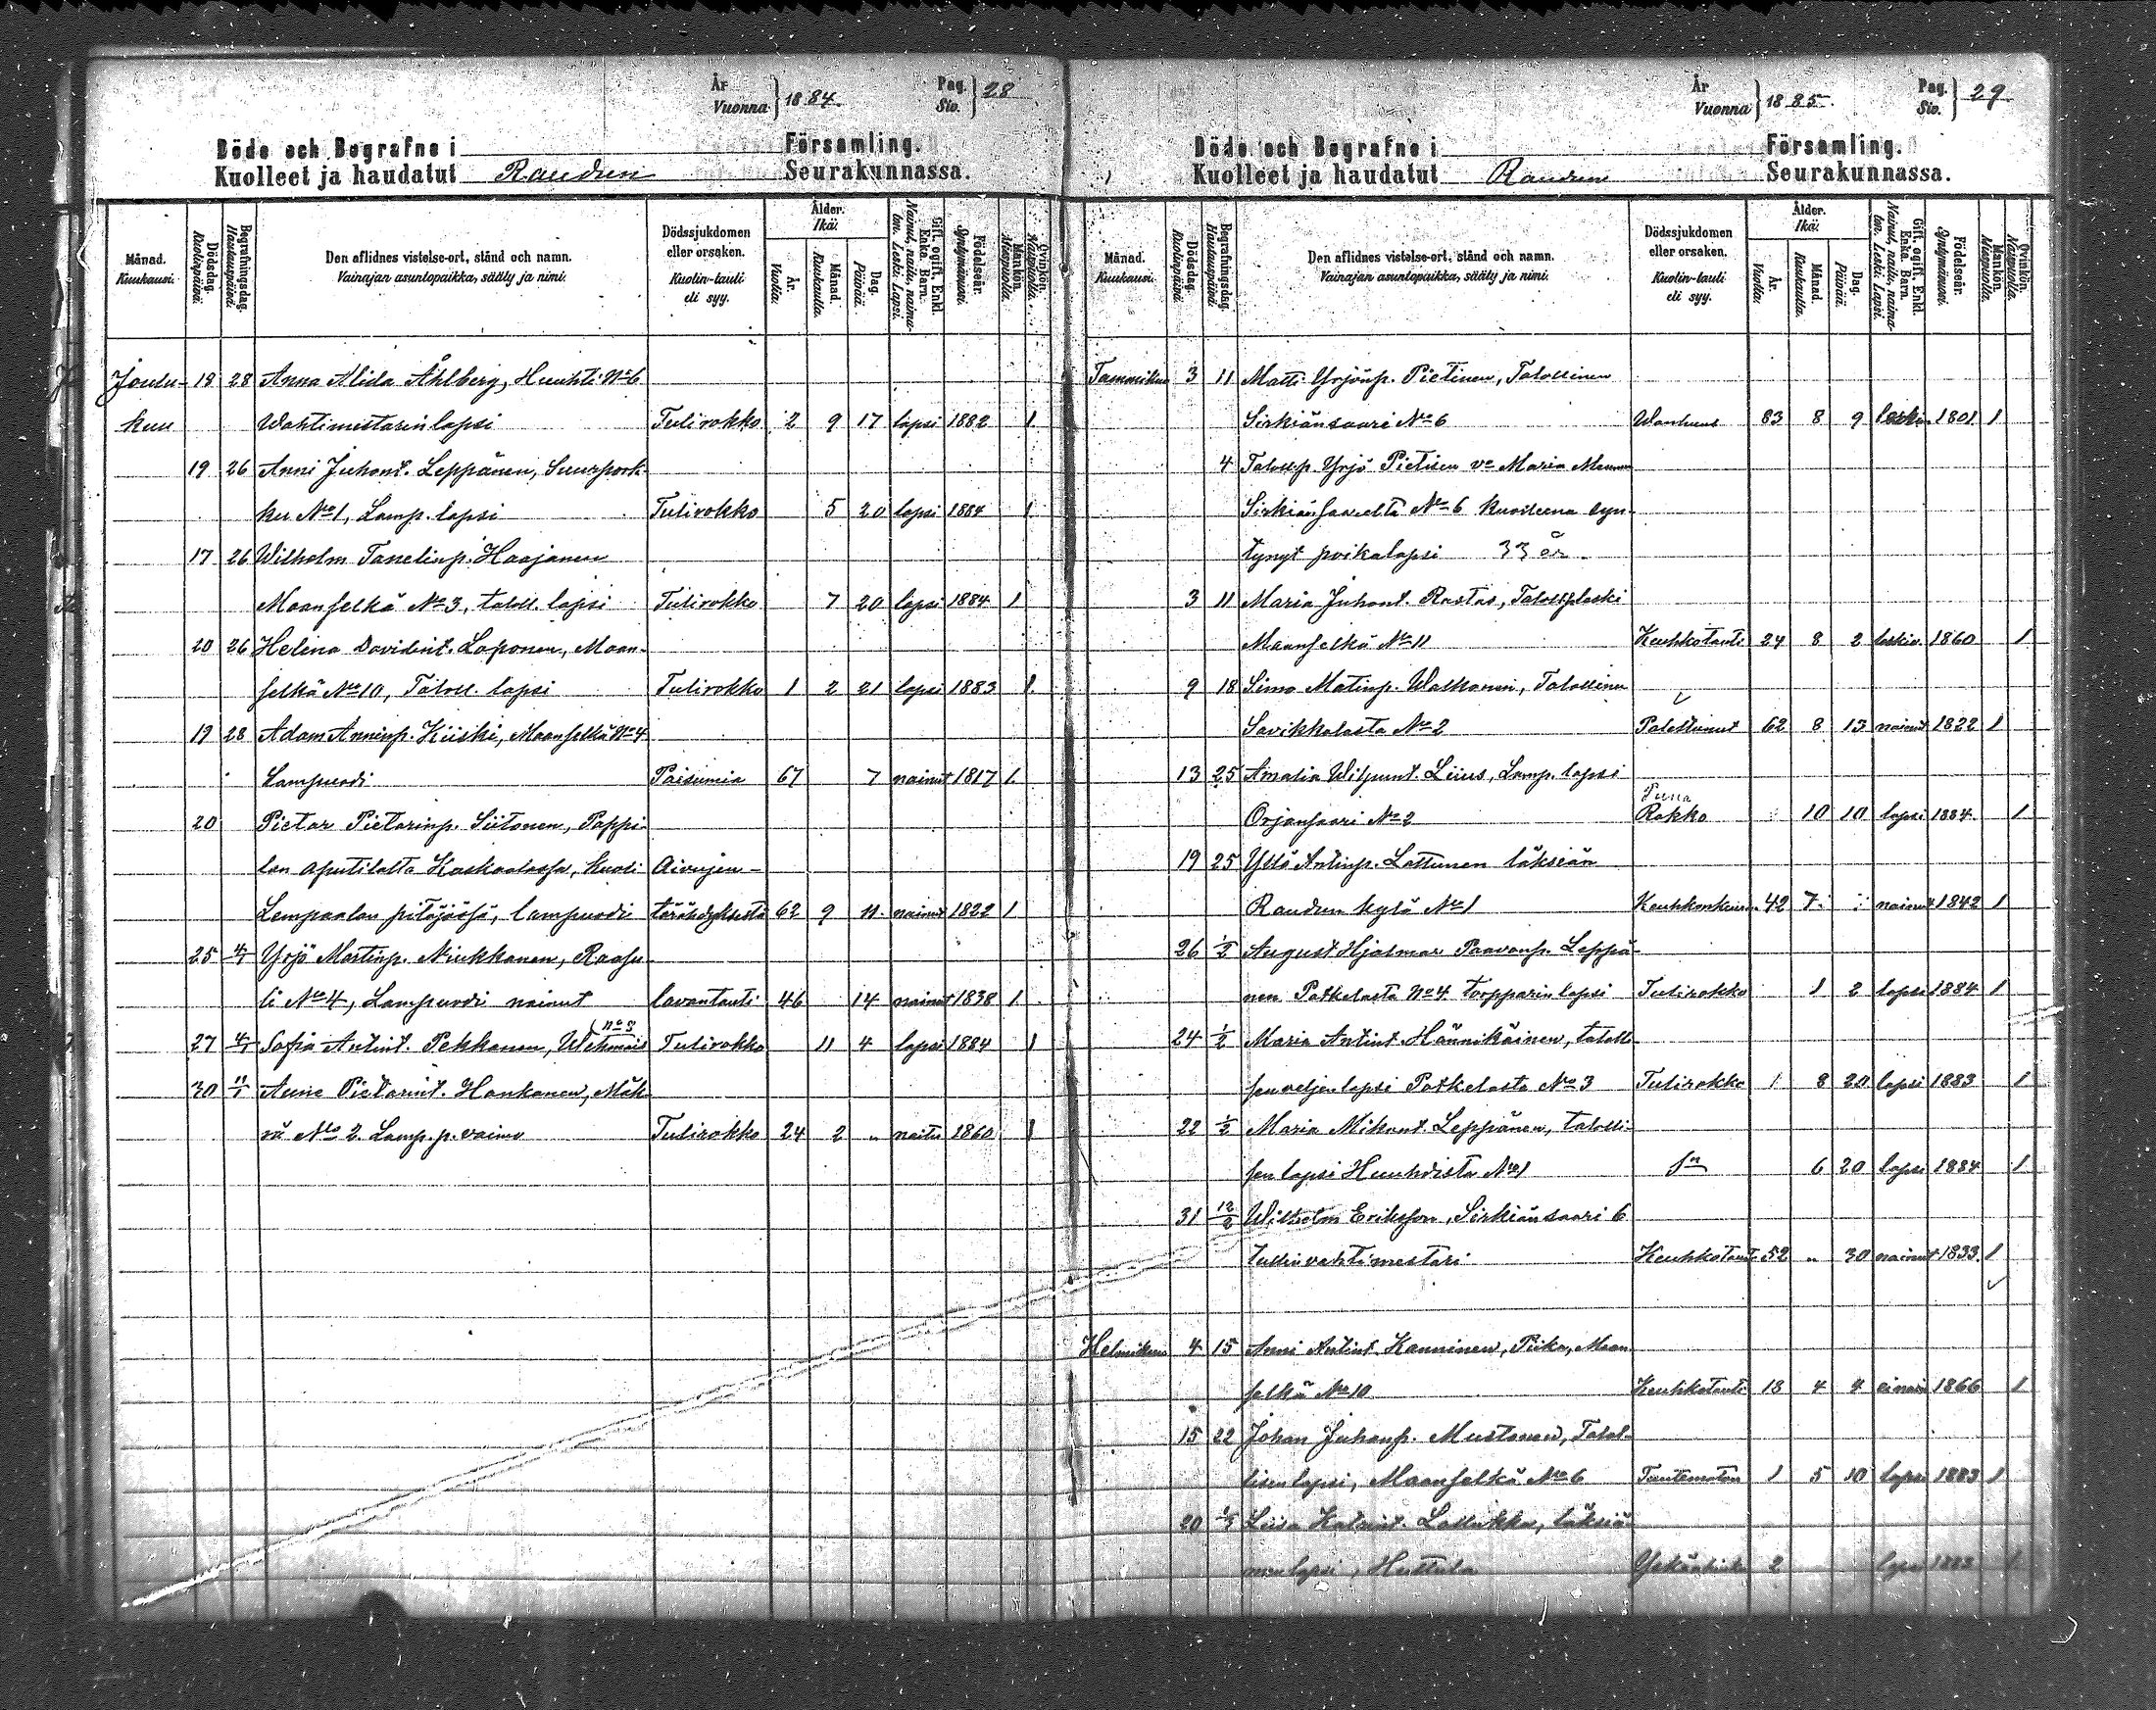 År
Vuonna } 1884.
Pag.
Siv. } 28
Döde och Begrafne i Församling.
Kuolleet ja haudatut Raudun Seurakunnassa.
Månad. Kuukausi.
Dödsdag. Kuolinpäivä.
Begrafningsdag. Hautauspäivä.
Den aflidnes vistelse-ort, stånd och namn.
Vainajan asuntopaikka, sääty ja nimi.
Dödssjukdomen eller orsaken.
Kuolin-tauti eli syy.
Ålder. Ikä.
År. Vuotta.
Månad. Kuukautta.
Dag. Päivää.
Gift, ogift, Enkl. Enka. Barn.
Nainut, naitu, naimaton. Leski. Lapsi.
Födelseår. Syntymävuosi.
Mankön. Miespuolta.
Qvinkön. Naispuolta.
Joulu- 18 28 Anna Alida Åhlberg, Huuhti No 6
kuu Wahtimestarin lapsi Tulirokko 2 9 17 lapsi 1882 1
19 26 Anni Juhont. Leppänen, Suurpork-
ku No 1, Lamp. lapsi Tulirokko 5 20 lapsi 1884 1
17 26 Wilhelm Tanelinp. Haajanen
Maanselkä No 3, taloll. lapsi Tulirokko 7 20 lapsi 1884 1
20 26 Helena Davidint. Loponen, Maan-
selkä No 10, Taloll. lapsi Tulirokko 1 2 21 lapsi 1883 1
19 28 Adam Anninp. Kiiski, Maanselkä No 4
Lampuodi Paisumia 67 7 nainut 1817 1.
20 Pietar Pietarinp. Siitonen, Pappi-
lan aputilalta Kaskaalassa, kuoli Aivujen-
Lempaalan pitäjässä, lampuodi tärähdyksestä 62 9 11 nainut 1822 1
25 4/1 Yrjö Martinp. Niukkanen, Raasu-
li No 4, Lampuodi nainut lavantauti 46 14 nainut 1838 1
27 4/1 Sofia Antint. Pekkanen, Wehmais No 3 Tulirokko 11 4 lapsi 1884 1
30 11/1 Anne Pietarint. Hankanen, Mäk-
rä No 2. Lamp. p. vaimo Tulirokko 24 2 " naitu 1860 1
År
Vuonna } 1885.
Pag.
Siv. } 29
Döde och Begrafne i Församling.
Kuolleet ja haudatut Raudun Seurakunnassa.
Månad. Kuukausi.
Dödsdag. Kuolinpäivä.
Begrafningsdag. Hautauspäivä
Den aflidnes vistelse-ort, stånd och namn.
Vainajan asuntopaikka, sääty ja nimi.
Dödssjukdomen eller orsaken.
Kuolin-tauti eli syy.
Ålder. Ikä.
År. Vuotta.
Månad. Kuukautta.
Dag. Päivää.
Gift, ogift, Enkl. Enka. Barn.
Nainut, naitu, naimaton. Leski. Lapsi.
Födelseår. Syntymävuosi.
Mankön. Miespuolta.
Qvinkön. Naispuolta.
Tammikuu 3 11 Matti Yrjönp. Pietinen, Talollinen
Sirkiänsaari No 6 Wanhuus 83 8 9 leski 1801 1
4 Talollp. Yrjö Pietisen vo Maria
Sirkiänsaarelta No 6 kuolleena syn-
tynyt poikalapsi 33 år.
3 11 Maria Juhont. Rastas, Talollp. leski
Maanselkä No 11 Keuhkotauti 24 8 2 leskiv. 1860 1
9 18 Simo Matinp. Walkonen, Talollinen
Savikkolasta No 2 Palottunut 62 8 13 nainut 1822 1
13 25 Amalia Wilpunt. Liius, Lamp. lapsi
Orjansaari No 2 Puna Rokko 10 10 lapsi 1884. 1
19 25 Yrjö Antinp. Lattunen läksiän
Raudun kylä No 1 42 7 nainut 1842 1
26 1/2 August Hjalmar Paavonp. Leppä-
nen Potkelasta No 4 torpparin lapsi Tulirokko 1 2 lapsi 1884 1
24 1/2 Maria Antint. Hännikäinen, taloll-
sen veljen lapsi Potkelasta No 3 Tulirokko 1 8 20 lapsi 1883 1
22 1/2 Maria Mikont. Leppänen, talolli-
sen lapsi Huuhdista No 1 6 20 lapsi 1884 1
31 12/2 Wilhelm Eriksson, Sirkiänsaari 6
Tullinvahtimestari Keuhkotauti 52 " 30 nainut 1833. 1
Helmikuu 4 15 Anni Antint. Kanninen, Piika, Maan
selkä No 10 Keuhkotauti 18 4 4 ei nain 1866 1
15 22 Johan Juhanp. Mustonen, Talol-
lisen lapsi, Maanselkä No 6 Tuntematon 1 5 10 lapsi 1883 1
20 1/3 Liisa Lallukka, läksiä-
men lapsi, Huttula 2 lapsi 1883 1